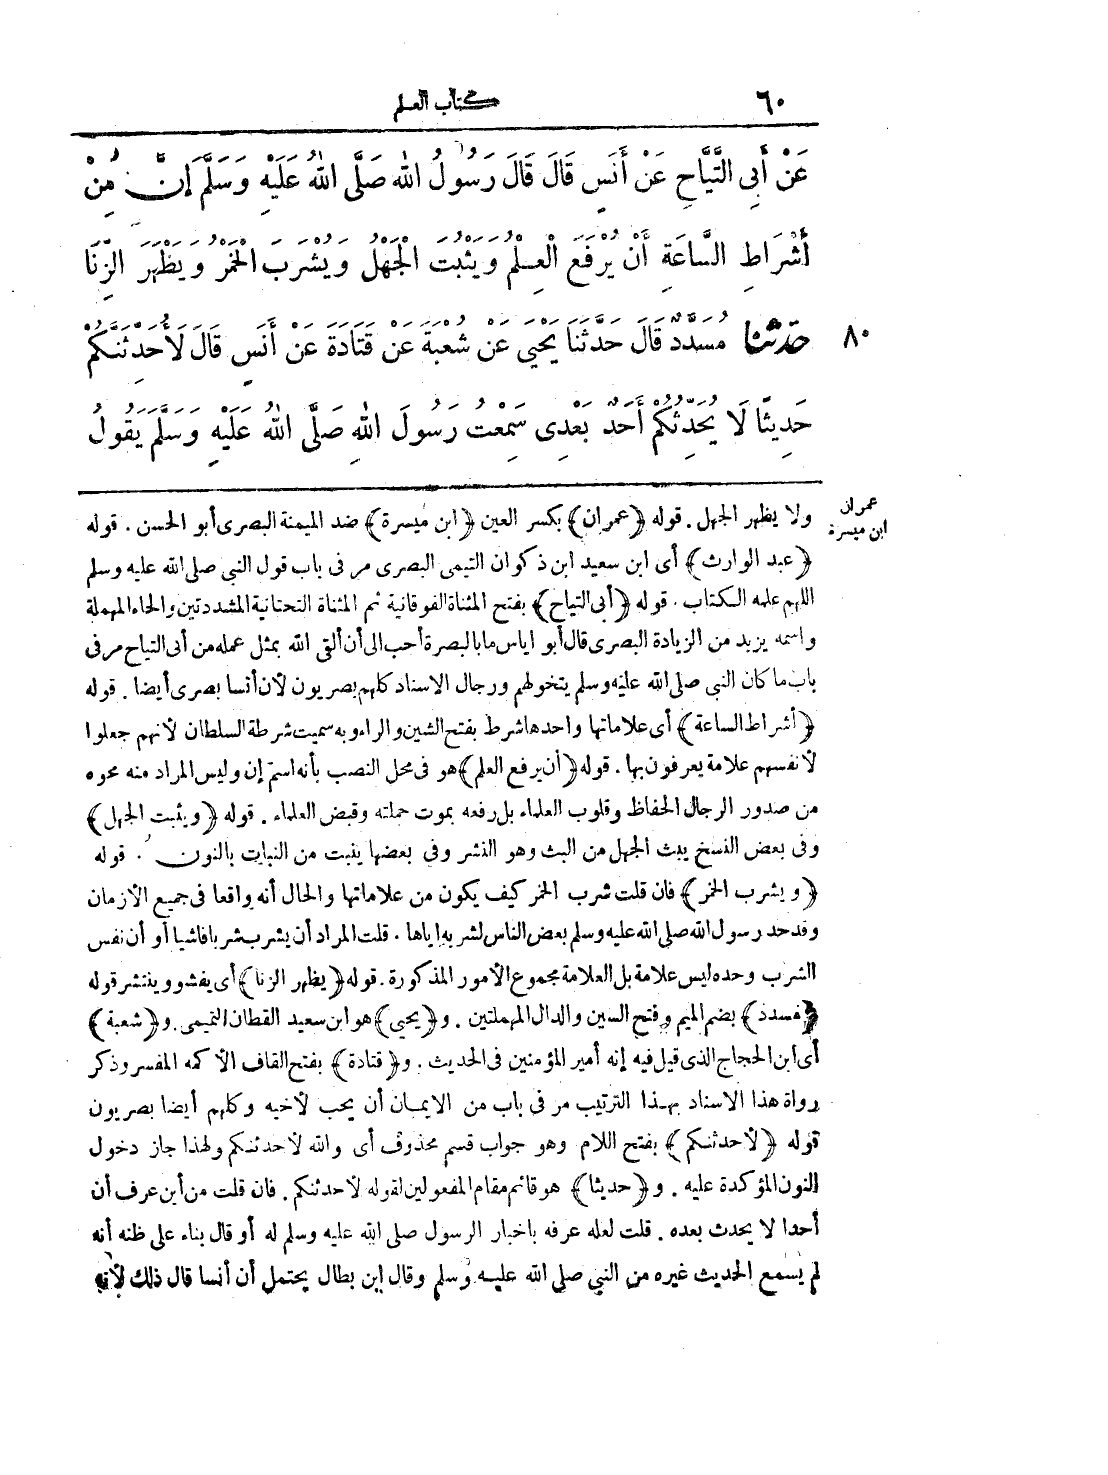 ٦٠
كتاب العلم
عَنْ أَبِى التَّيَّاحِ عَنْ أَنَسٍ قَالَ قَالَ رَسُولُ اللهِ صَلَّى اللهُ عَلَيْهِ وَسَلَّمَ إِنَّ مِنْ
أَشْرَاطِ السَّاعَةِ أَنْ يُرْفَعَ الْعِلْمُ وَيَثْبُتَ الْجَهْلُ وَيُشْرَبَ الْخَمْرُ وَيَظْهَرَ الزِّنَا
٨٠ حدثنا مُسَدَّدٌ قَالَ حَدَّثَنَا يَحْيَى عَنْ شُعْبَةَ عَنْ قَتَادَةَ عَنْ أَنَسٍ قَالَ لَأُحَدِّثَنَّكُمْ
حَدِيثًا لَا يُحَدِّثُكُمْ أَحَدٌ بَعْدِى سَمِعْتُ رَسُولَ اللهِ صَلَّى اللهُ عَلَيْهِ وَسَلَّمَ يَقُولُ
عمران
ابن ميسرة
ولا يظهر الجهل . قوله ﴿عمران﴾ بكسر العين ﴿ابن ميسرة﴾ ضد الميمنة البصرى أبو الحسن . قوله
﴿عبد الوارث﴾ أى ابن سعيد ابن ذكوان التيمى البصرى مر فى باب قول النبى صلى الله عليه وسلم
اللهم علمه الكتاب . قوله ﴿أبى التياح﴾ بفتح المثناة الفوقانية ثم المثناة التحتانية المشددتين والحاء المهملة
واسمه يزيد من الزيادة البصرى قال أبو اياس ما بالبصرة أحب الى أن ألقى الله بمثل عمله من أبى التياح مر فى
باب ما كان النبى صلى الله عليه وسلم يتخولهم ورجال الاسناد كلهم بصريون لأن أنسا بصرى أيضا . قوله
﴿أشراط الساعة﴾ أى علاماتها واحدها شرط بفتح الشين والراء وبه سميت شرطة السلطان لأنهم جعلوا
لأنفسهم علامة يعرفون بها . قوله ﴿أن يرفع العلم﴾ هو فى محل النصب بأنه اسم إن وليس المراد منه محوه
من صدور الرجال الحفاظ وقلوب العلماء بل رفعه بموت حملته وقبض العلماء . قوله ﴿ويثبت الجهل﴾
وفى بعض النسخ يبث الجهل من البث وهو النشر وفى بعضها ينبت من النبات بالنون . قوله
﴿ويشرب الخمر﴾ فان قلت شرب الخمر كيف يكون من علاماتها والحال أنه واقعا فى جميع الأزمان
وقد حد رسول الله صلى الله عليه وسلم بعض الناس لشربه إياها . قلت المراد أن يشرب شربا فاشيا أو أن نفس
الشرب وحده ليس علامة بل العلامة مجموع الأمور المذكورة . قوله ﴿يظهر الزنا﴾ أى يفشو وينتشر قوله
﴿مسدد﴾ بضم الميم وفتح السين والدال المهملتين . و﴿يحيى﴾ هو ابن سعيد القطان التميمى . و﴿شعبة﴾
أى ابن الحجاج الذى قيل فيه إنه أمير المؤمنين فى الحديث . و﴿قتادة﴾ بفتح القاف الأكمه المفسر وذكر
رواة هذا الاسناد بهذا الترتيب مر فى باب من الايمان أن يحب لأخيه وكلهم أيضا بصريون
قوله ﴿لأحدثنكم﴾ بفتح اللام وهو جواب قسم محذوف أى والله لأحدثنكم ولهذا جاز دخول
النون المؤكدة عليه . و﴿حديثا﴾ هو قائم مقام المفعولين لقوله لأحدثنكم . فان قلت من أين عرف أن
أحدا لا يحدث بعده . قلت لعله عرفه باخبار الرسول صلى الله عليه وسلم له أو قال بناء على ظنه أنه
لم يسمع الحديث غيره من النبى صلى الله عليه وسلم وقال ابن بطال يحتمل أن أنسا قال ذلك لأنه